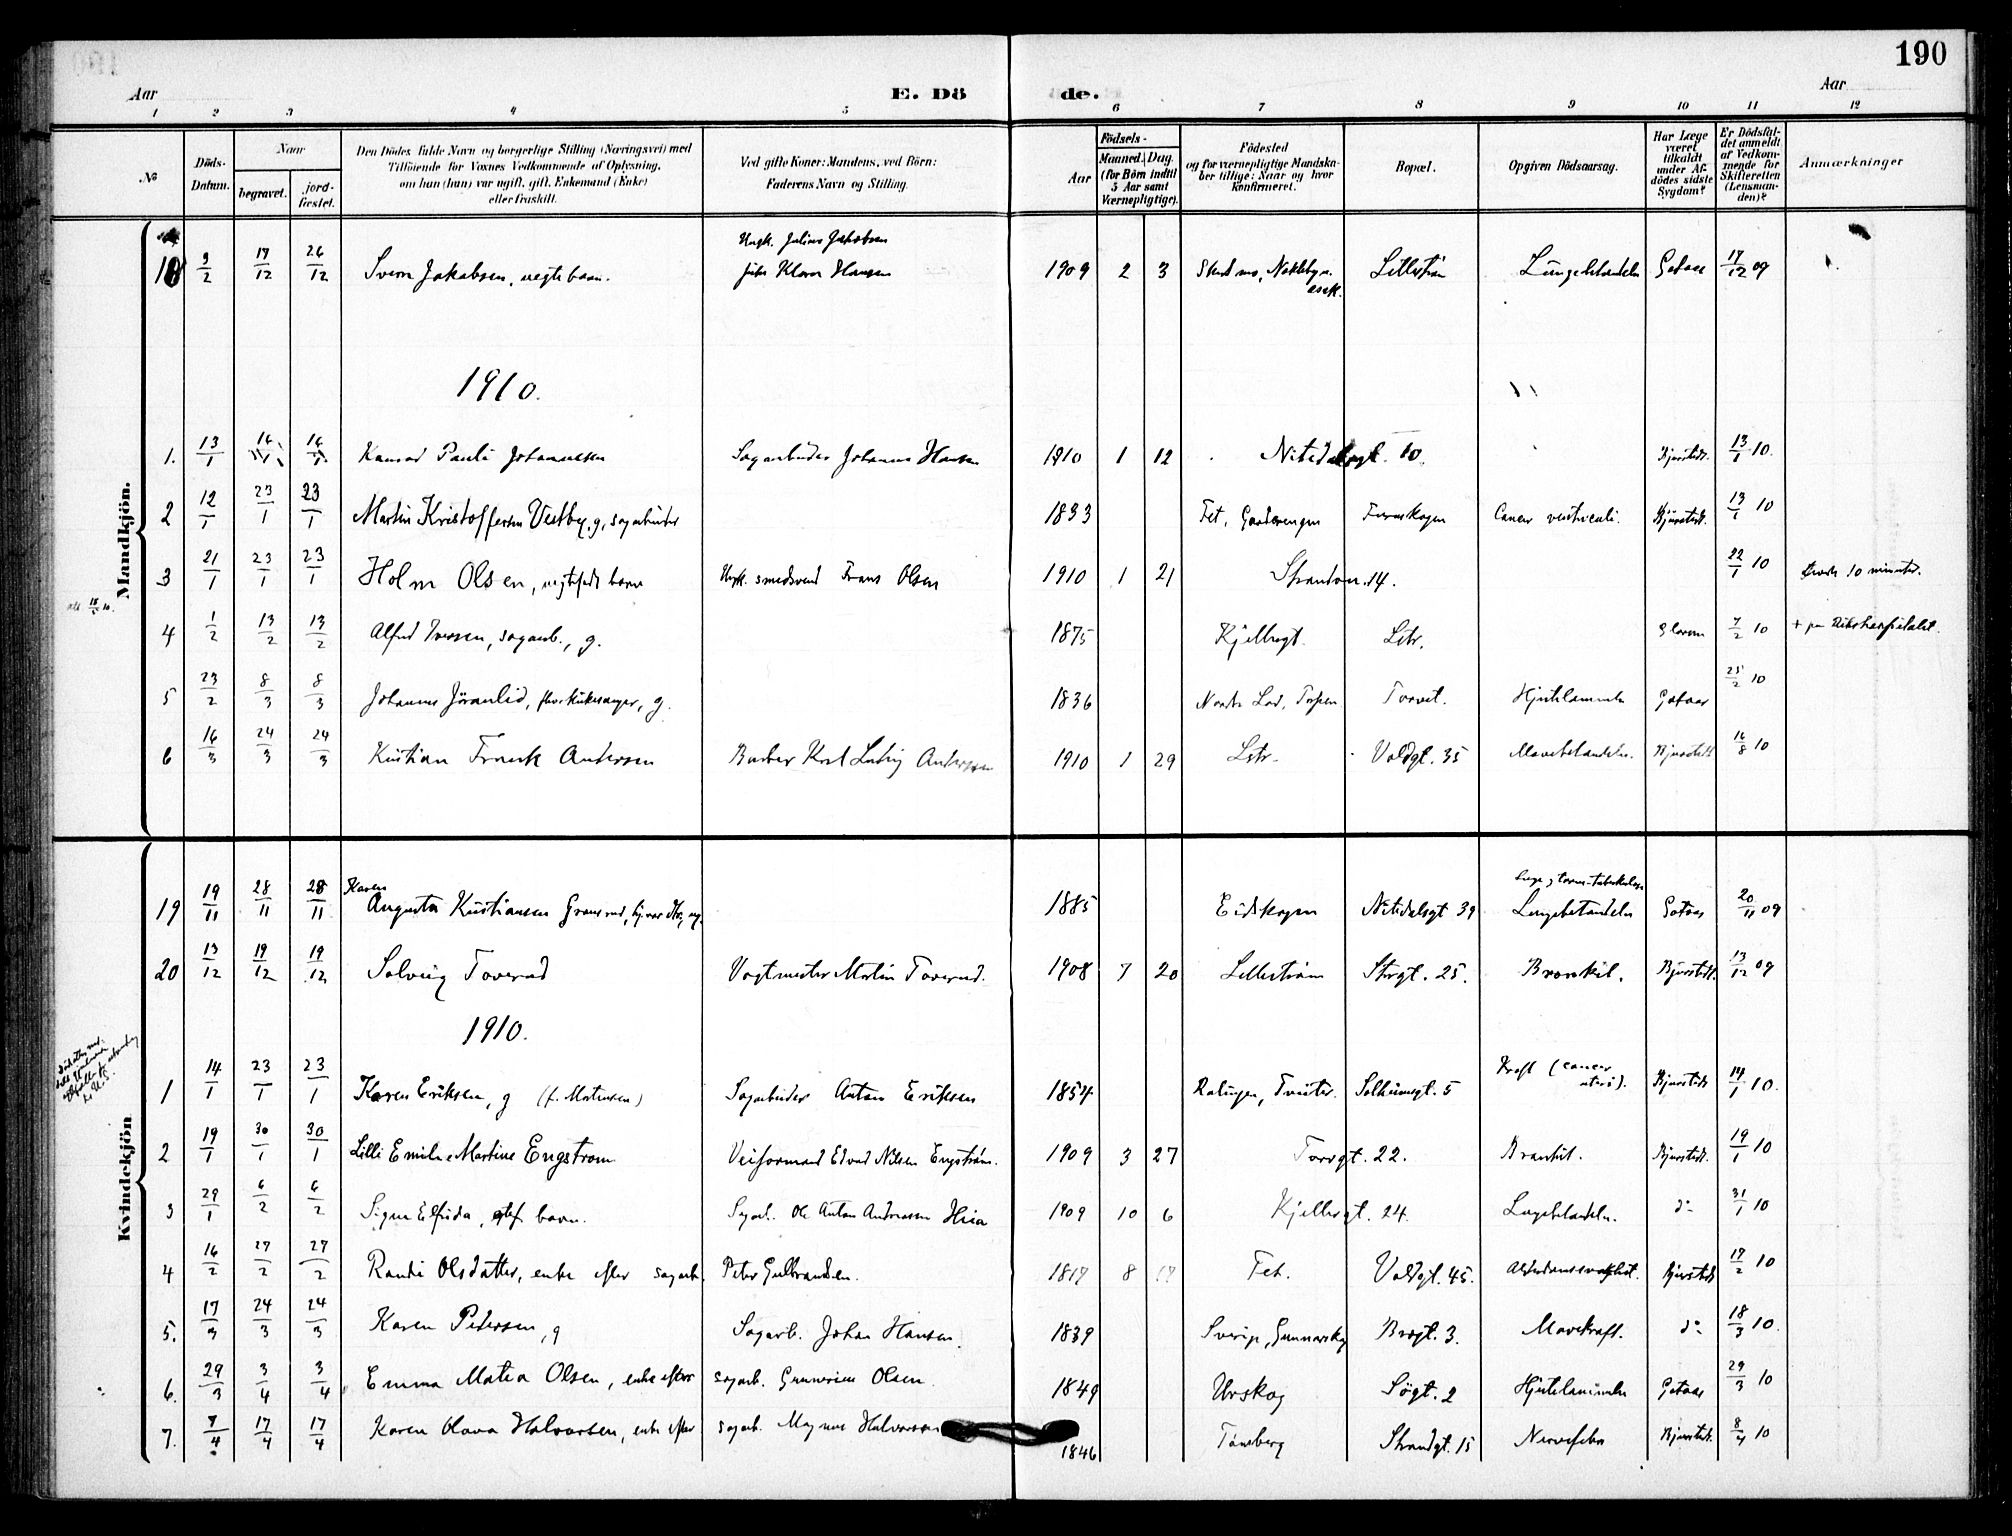 190
Aar
E. Dö
de.
Aar
1 2 3 4 5 6 7 8 9 10 11 12
No
Döds-Datum.
Naar
begravet.
jord-fæstet.
Den Dödes fulde Navn og borgerlige Stilling (Næringsvei) med
Tilföiende for Voxnes Vedkommende af Oplysning,
om han (hun) var ugift, gift, Enkemand (Enke)
eller fraskilt.
Ved gifte Koner: Mandens, ved Börn:
Faderens Navn og Stilling.
Födsels-
Aar
Maaned. Dag.
(for Börn indtil
5 Aar samt
Værnepligtige).
Födested
og for værnepligtige Mandska-
ber tillige: Naar og hvor
konfirmeret.
Bopæl.
Opgiven Dödsaarsag.
Har Læge
været
tilkaldt
under Af-
dödes sidste
Sygdom?
Er Dödsfal-
det anmeldt
af Vedkom-
mende for
Skifteretten
(Lensman-
den)?
Anmærkninger
Mandkjön.
Ungk. Julius Jakobsen
18 3/2 17/12 26/12 Sverre Jakobsen, uegte barn. pike Klara Hansen 1909 2 3 Lilleström Lungebetændelse Gotaas 17/12 09
1910.
1. 13/1 16/1 16/1 Konrad Pauli Johannessen Sagarbeider Johannes Hansen 1910 1 12 Nitedalsgt. 10. Bjurstedt. 13/1 10.
2 12/1 23/1 23/1 Martin Kristoffersen Vestby, g, sagarbeider 1833 Fet, Furuskogen Cancer ventriculi. Bjurstedt. 13/1 10
3 21/1 23/1 23/1 Holm Olsen, uegtefødt barn Ungk. smedsvend Frans Olsen 1910 1 21 Strandvn. 14. 22/1 10 levede 10 minuter.
4 1/2 13/2 13/2 Alfred Iversen, sagarb., g. 1875 Kjellergt. Lstr. 7/2 10 + paa Rikshospitalet.
5 23/2 8/3 8/3 Johannes Jöranlid, g. 1836 Nordre Land, Torpen Torvet. Hjertelammelse Gotaas 25/2 10
6 16/3 24/3 24/3 Kristian Frank Andersen Barber Karl Ludvig Andersen 1910 1 29 Lstr. Voldgt. 35 Mavebetændelse. Bjurstedt 16/8 10
Kvindekjön
Karen
19 19/11 28/11 28/11 Augusta Kristiansen Gransrud, ug. 1885 Eidskogen Nitedalsgt 39 Lungebetændelse Gotaas 20/11 09
20 13/12 19/12 19/12 Solveig Toverud Vogtmester Martin Toverud. 1908 7 20 Lilleström Storgt. 25. Bronkit. Bjurstedt. 13/12 09
1910.
1 14/1 23/1 23/1 Karen Eriksen, g (f. Mortensen) Sagarbeider Anton Eriksen 1854 Rælingen, Tveiter. Solheimsgt. 5 Kræft (cancer uteri). Bjurstedt 14/1 10.
2 19/1 30/1 30/1 Lilli Emilie Martine Engstrom Veiformand Edvard Nilsen Engström. 1909 3 27 Torvgt. 22. Bronkit. Bjurstedt. 19/1 10
3 29/1 6/2 6/2 Signe Elfrida, barn. Sagarb. Ole Anton Andreassen 1909 10 6 Kjellergt. 24. Lungebetændelse. do 31/1 10
4 16/2 27/2 27/2 Randi Olsdatter, enke efter sagarb. Peter Gulbrandsen. 1817 8 17 Fet. Voldgt. 45. Alderdomssvaghet. Bjurstedt 17/2 10
5. 17/3 24/3 24/3 Karen Pedersen, g Sagarb. Johan Hansen. 1839 Sverige, Gunnarskog Brogt. 3. Mavekræft. do 18/3 10.
6. 29/3 3/4 3/4 Emma Matea Olsen, enke efter sagarb. Gunnerius Olsen. 1849 Urskog Søgt. 2 Hjertelammelse Gotaas 29/3 10
7. 7/4 17/4 17/4 Karen Olava Halvorsen, enke efter sagarb. Magnus Halvorsen 1846 Tönsberg Strandgt. 15 Nervefeber Bjurstedt. 8/4 10